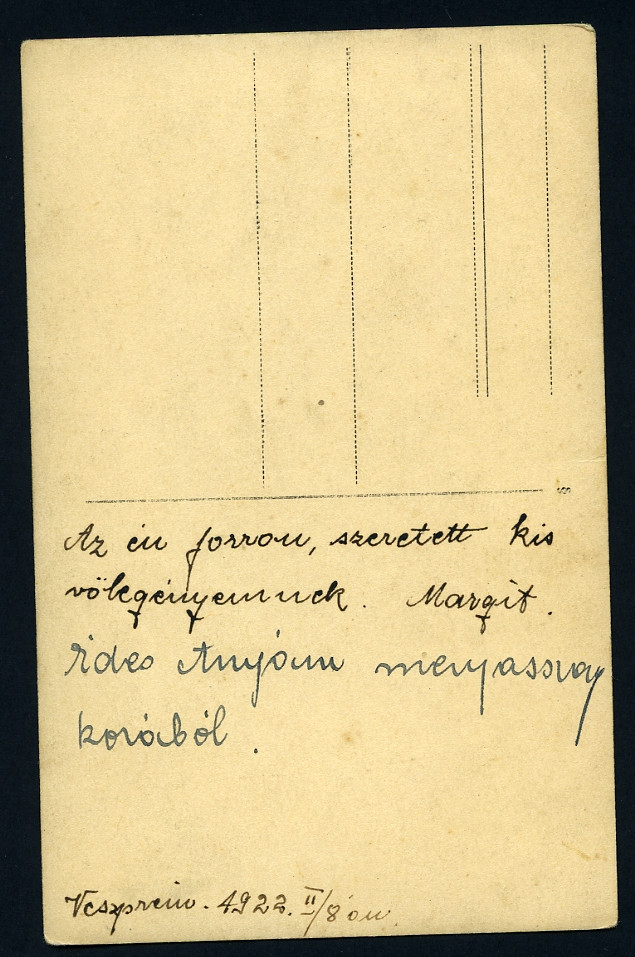 Az én forron, szeretett kis
vőlegényemnek. Margit.
Édes Anyám menyasszony
korából.
Veszprém. 1922. II/8 án.